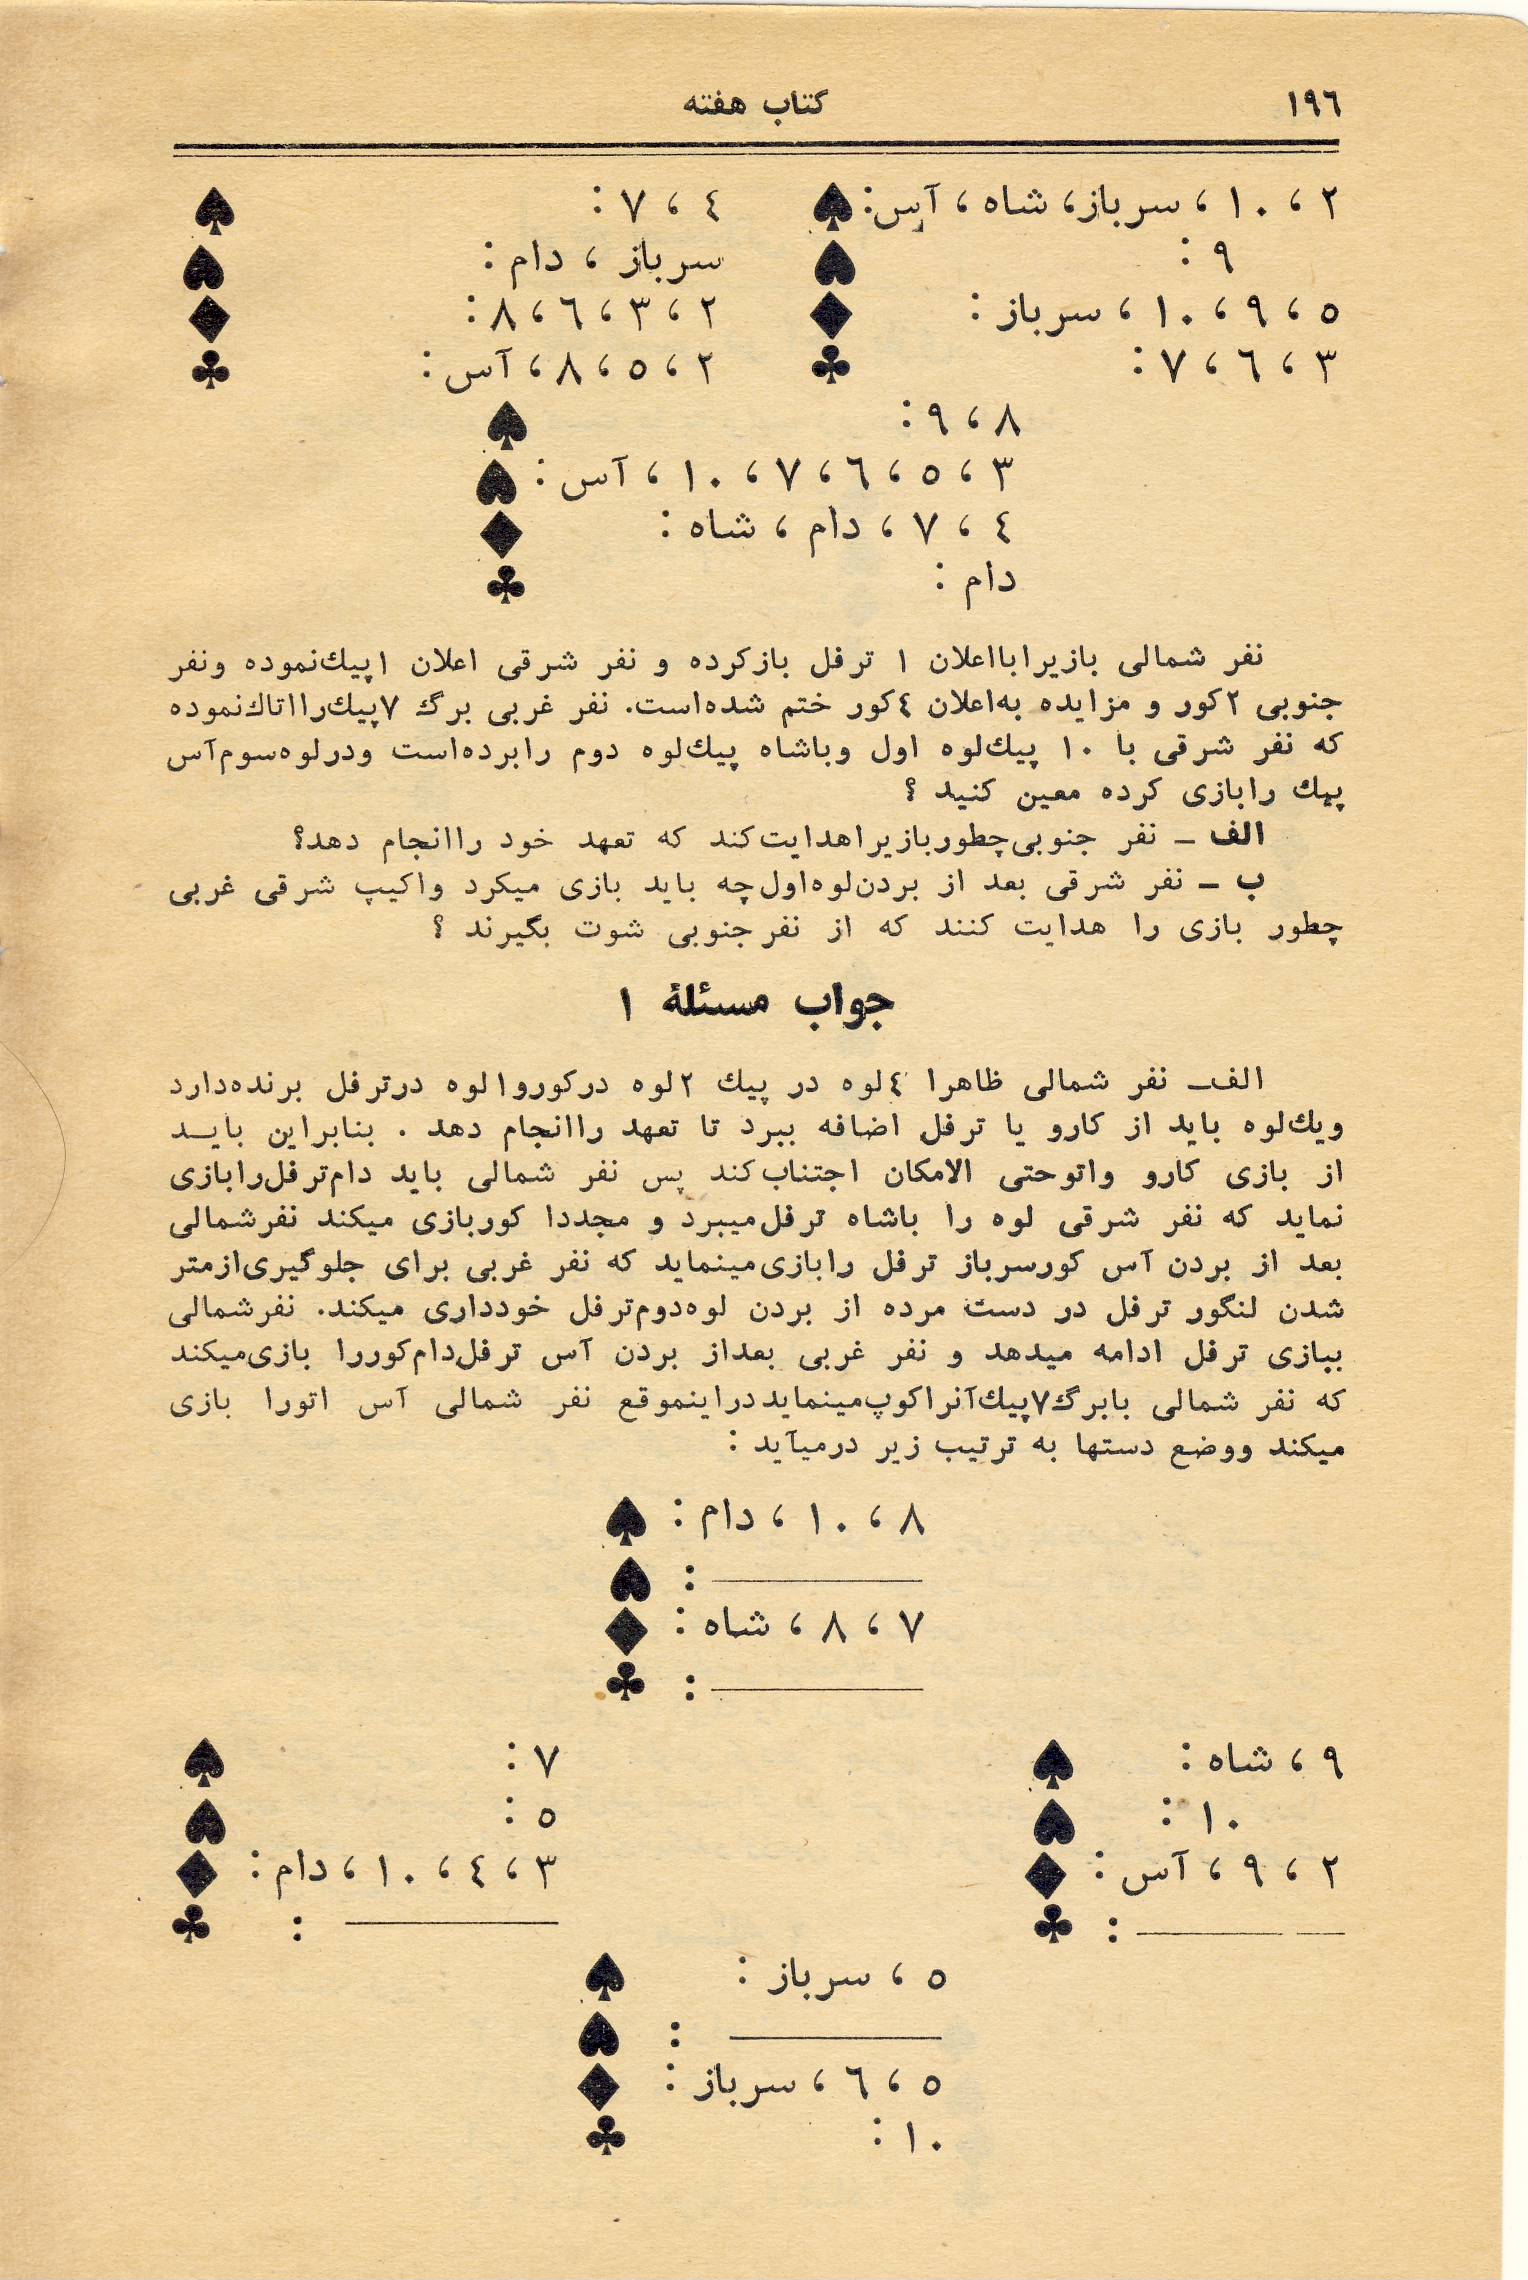 ۱۹٦ کتاب هفته
۲ ، ۱۰ ، سرباز، شاه ، آس: ♠ ٤ ، ۷ : ♠
۹ : ♥ سرباز ، دام : ♥
٥ ، ۹ ، ۱۰ ، سرباز : ♦ ۲ ، ۳ ، ٦ ، ۸ : ♦
۳ ، ٦ ، ۷ : ♣ ۲ ، ٥ ، ۸ ، آس : ♣
۸ ، ۹ : ♠
۳ ، ٥ ، ٦ ، ۷ ، ۱۰ ، آس : ♥
٤ ، ۷ ، دام ، شاه : ♦
دام : ♣
نفر شمالی بازیرابااعلان ۱ ترفل بازکرده و نفر شرقی اعلان ۱پیك‌نموده ونفر
جنوبی ۲کور و مزایده به‌اعلان ٤کور ختم شده‌است. نفر غربی برگ ۷پیك‌رااتاك‌نموده
که نفر شرقی با ۱۰ پیك‌لوه اول وباشاه پیك‌لوه دوم رابرده‌است ودرلوه‌سوم‌آس
پیك رابازی کرده معین کنید ؟
الف ــ نفر جنوبی‌چطوربازیراهدایت‌کند که تعهد خود راانجام دهد؟
ب ــ نفر شرقی بعد از بردن‌لوه‌اول‌چه باید بازی میکرد واکیپ شرقی غربی
چطور بازی را هدایت کنند که از نفرجنوبی شوت بگیرند ؟
جواب مسئلهٔ ۱
الف‌ــ نفر شمالی ظاهرا ٤لوه در پیك ۲لوه درکورو۱لوه درترفل برنده‌دارد
ویك‌لوه باید از کارو یا ترفل اضافه ببرد تا تعهد راانجام دهد . بنابراین بایــد
از بازی کارو واتوحتی الامکان اجتناب‌کند پس نفر شمالی باید دام‌ترفل‌رابازی
نماید که نفر شرقی لوه را باشاه ترفل‌میبرد و مجددا کوربازی میکند نفرشمالی
بعد از بردن آس کورسرباز ترفل رابازی‌مینماید که نفر غربی برای جلوگیری‌ازمتر
شدن لنگور ترفل در دست مرده از بردن لوه‌دوم‌ترفل خودداری میکند. نفرشمالی
ببازی ترفل ادامه میدهد و نفر غربی بعداز بردن آس ترفل‌دام‌کوررا بازی‌میکند
که نفر شمالی بابرگ۷پیك‌آنراکوپ‌مینماید دراینموقع نفر شمالی آس اتورا بازی
میکند ووضع دستها به ترتیب زیر درمیآید :
۸ ، ۱۰ ، دام : ♠
—— : ♥
۷ ، ۸ ، شاه : ♦
—— : ♣
۹ ، شاه : ♠ ۷ : ♠
۱۰ : ♥ ٥ : ♥
۲ ، ۹ ، آس : ♦ ۳ ، ٤ ، ۱۰ ، دام : ♦
—— : ♣ —— : ♣
٥ ، سرباز : ♠
—— : ♥
٥ ، ٦ ، سرباز : ♦
۱۰ : ♣